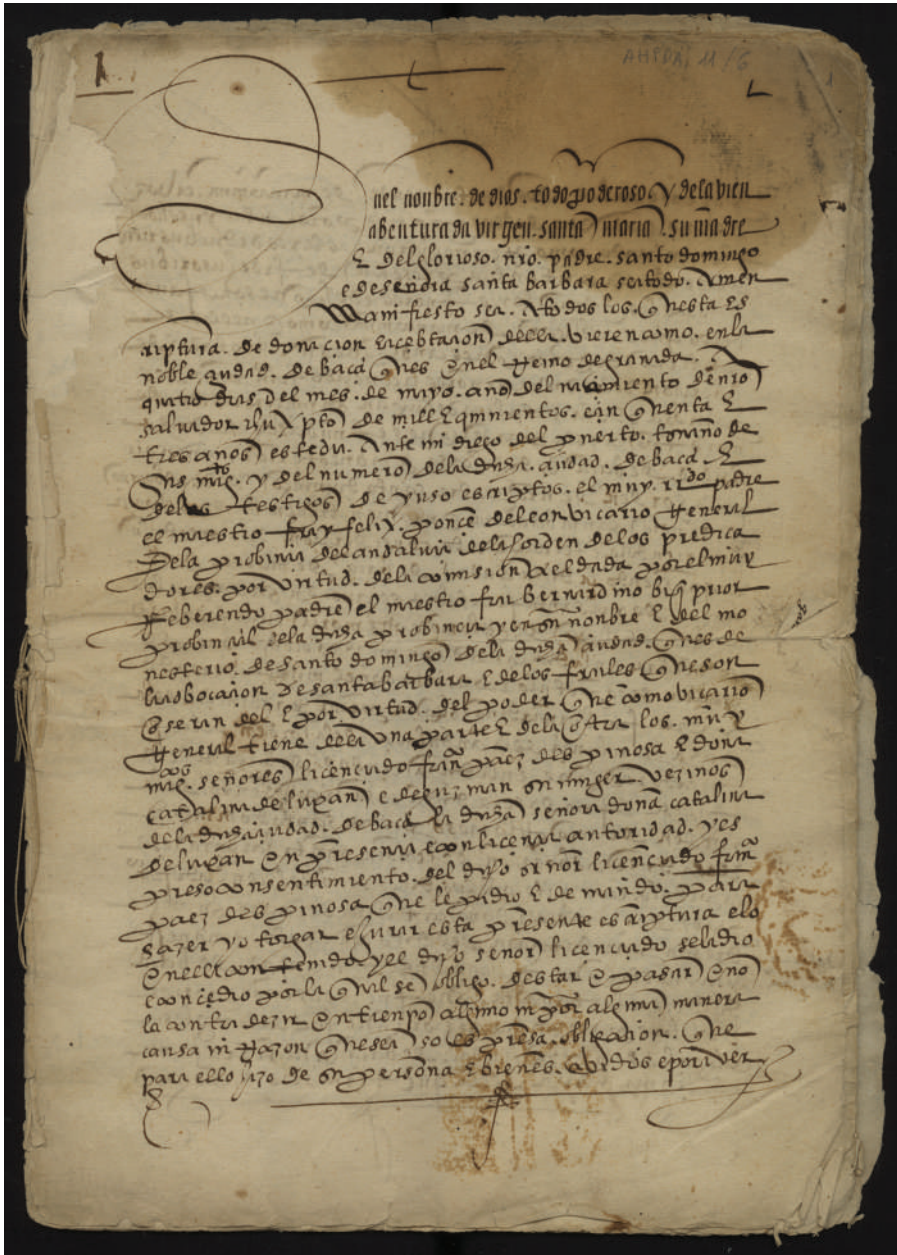 1
AHPDA, 11/6
nel nonbre. de dios. todo poderoso. y dela vien
abenturada virgen. santa maria. su madre
E del glorioso. nro. padre. santo domingo
e de señora santa barbara sea todo. Amen
Manifiesto sea. A todos los. questa es
criptura. de donacion E acebtaçion della. vieren como. en la
noble çiudad. de baça ques en el Reino de granada. A
quatro dias del mes. de mayo. año del naçimiento de nro
salvador ihu xpto de mill E quinientos. çinquenta E
tres años este dia. Ante mi diego del puerto. escriuano de
sus mg. y del numero dela dicha. çiudad. de baça. E
delos testigos de yuso escriptos. el muy. Rdo padre
el maestro fray felix. ponce de leon vicario General
dela probinçia del andaluzia dela horden delos predica
dores. por virtud. dela comision a el dada por el muy
Reberendo padre el maestro frai bernardino prior
probinçial dela dicha probinçia y en su nonbre E del mo
nesterio. de santo domingo dela dicha çiudad. ques de
la abocaçion de santa barbara E delos frailes que son
e seran del E por virtud. del poder que como vicario
General tiene dela una parte E dela otra los. muy
mag. señores liçençiado franco paez despinosa E doña
catalina de luxan e de guzman su muger. vezinos
dela dicha çiudad. de baça la dicha señora doña catalina
de luxan en presençia e con liçençia autoridad. y es
preso consentimiento. del dicho señor liçençiado franco
paez despinosa que le pidio E demando. para
hazer y otorgar e jurar esta presente escriptura e lo
en ella contenido y el dicho señor liçençiado se la dio
e conçedio por la qual se obligo. destar e pasar e no
la contradezir en tienpo alguno ni por alguna manera
causa ni Razon que sea so espresa. obligaçion. que
para ello hizo de su persona E bienes. abidos e por aver